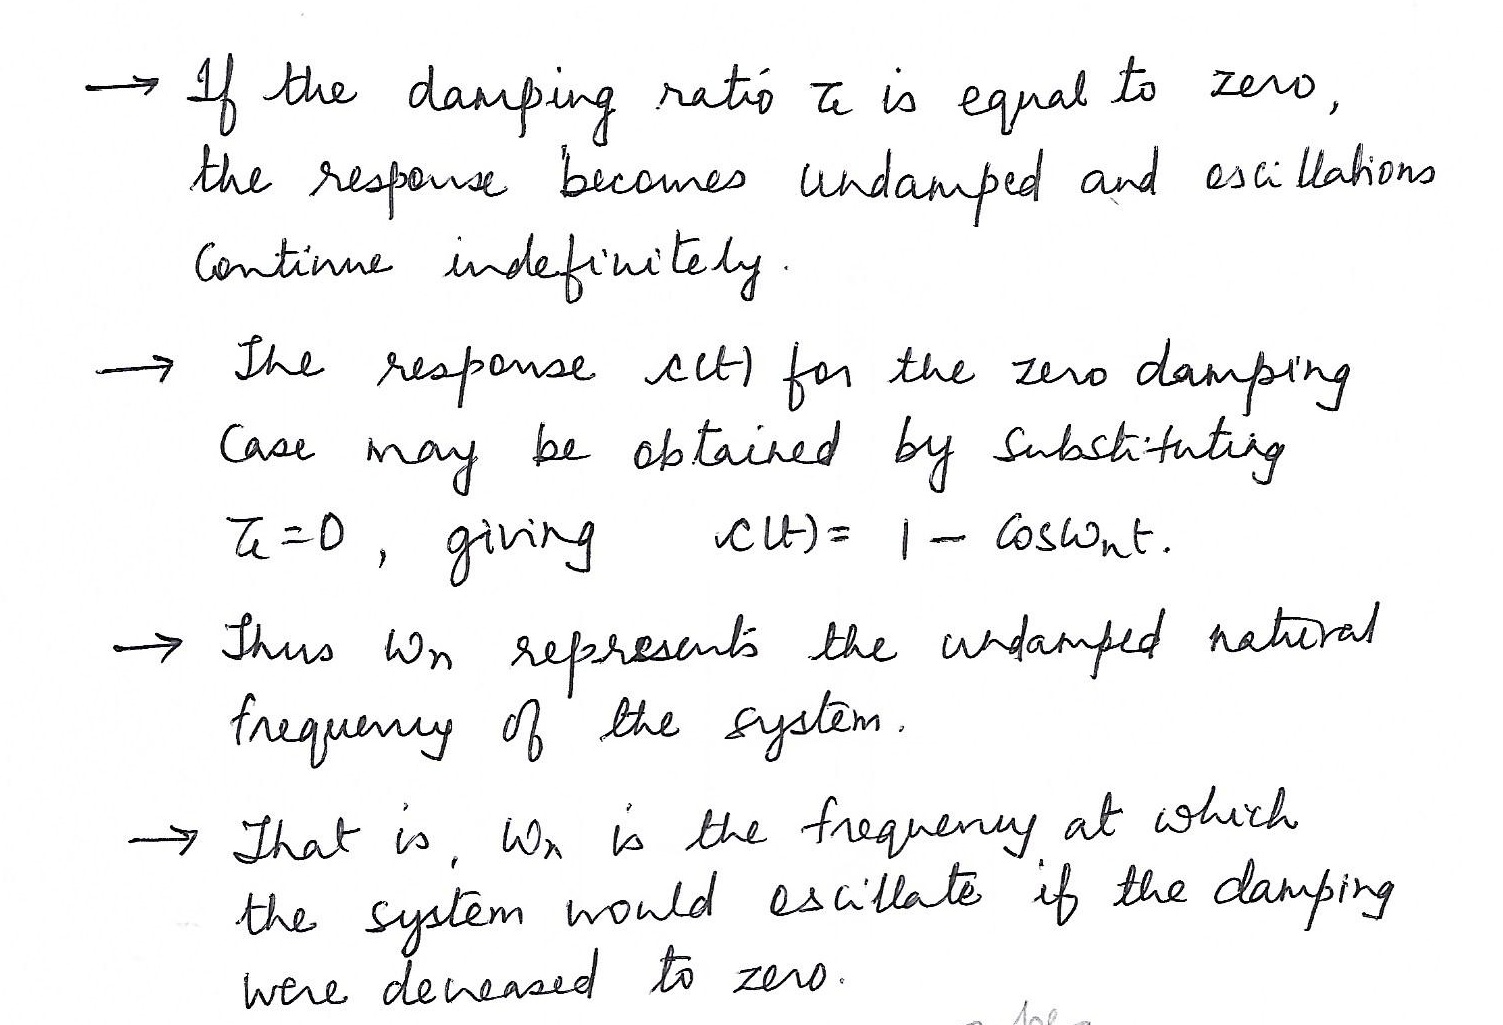 → If the damping ratio ζ is equal to zero,
the response becomes undamped and oscillations
Continue indefinitely.
→ The response c(t) for the zero damping
Case may be obtained by substituting
ζ=0, giving c(t)= 1 - Cosωnt.
→ Thus ωn represents the undamped natural
frequency of the system.
→ That is, ωn is the frequency at which
the system would oscillate if the damping
were decreased to zero.